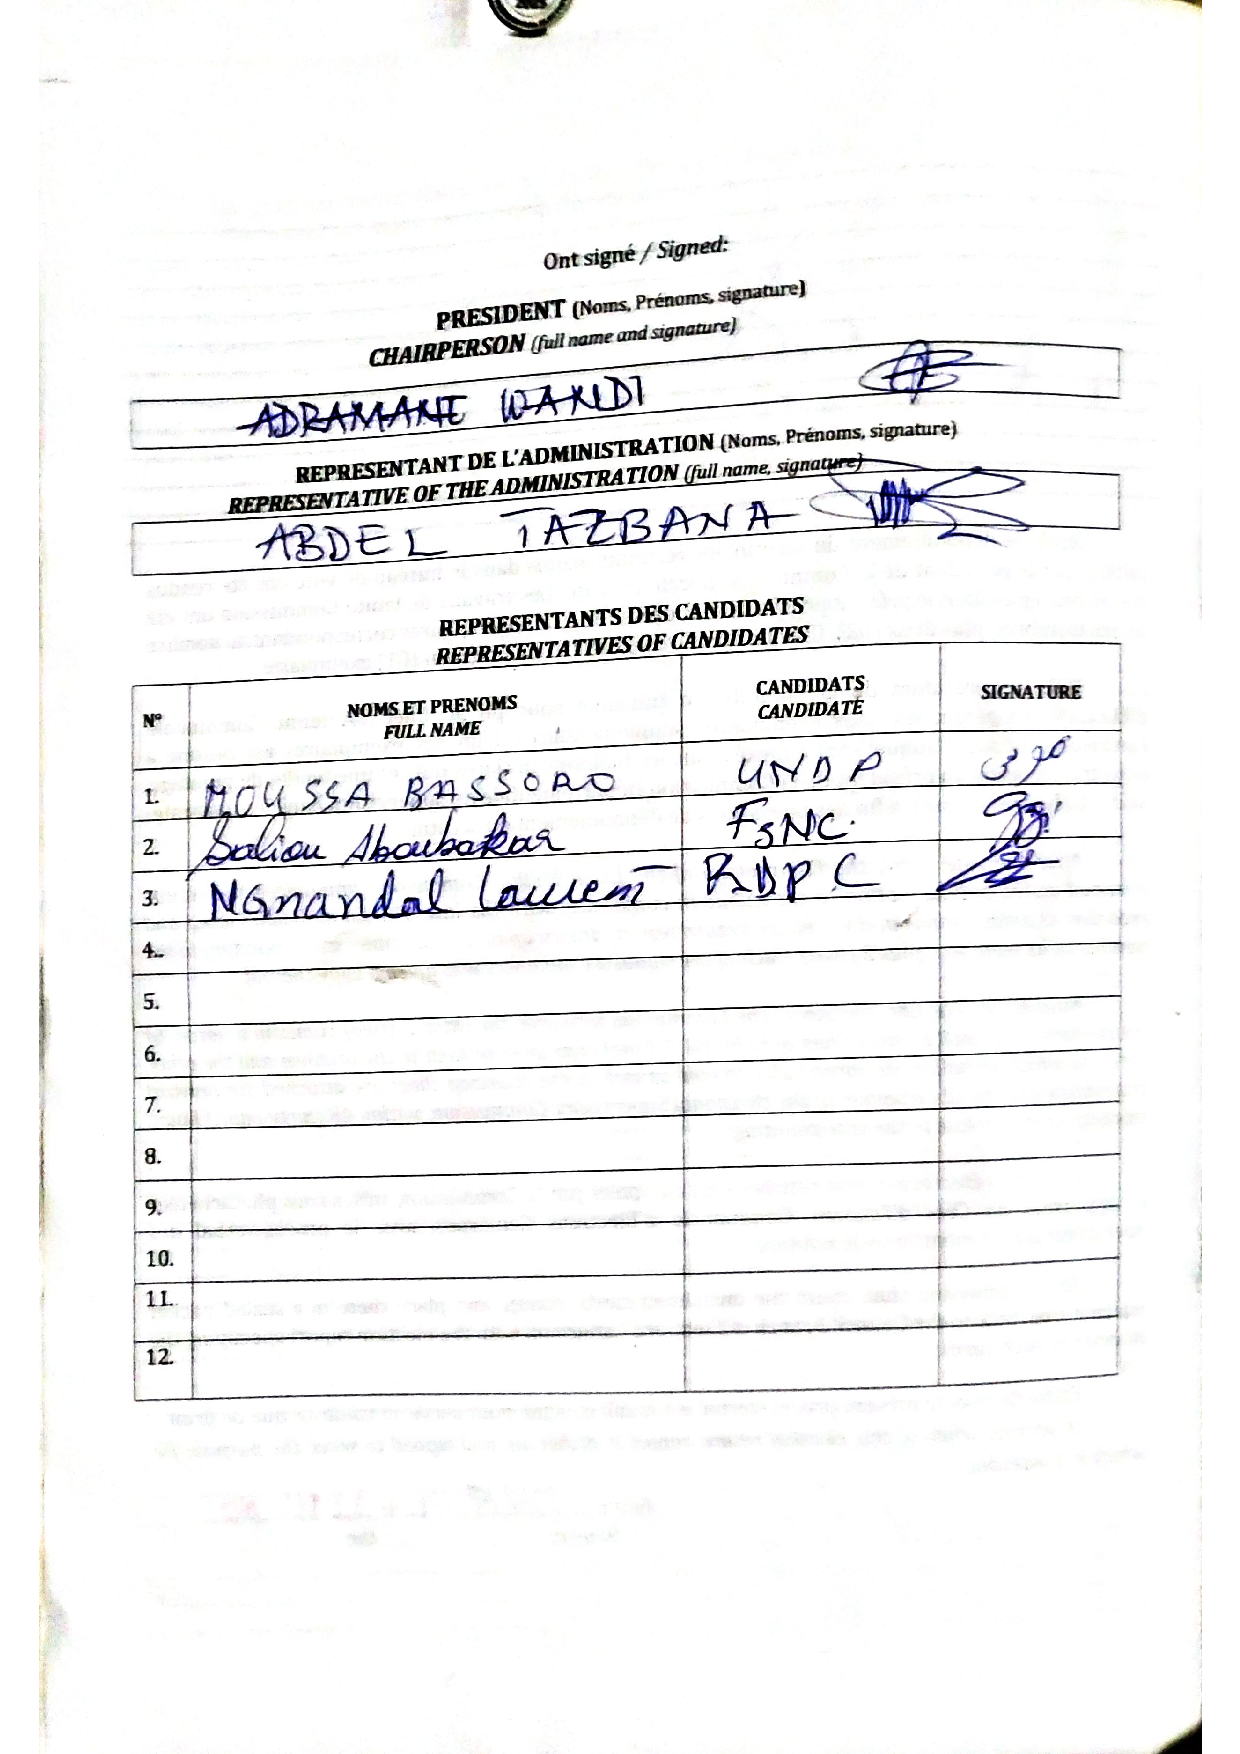 Ont signé / Signed:
PRESIDENT (Noms, Prénoms, signature)
CHAIRPERSON (full name and signature)
ADRAMANE WANDI
REPRESENTANT DE L'ADMINISTRATION (Noms, Prénoms, signature)
REPRESENTATIVE OF THE ADMINISTRATION (full name, signature)
ABDEL TAZBANA
REPRESENTANTS DES CANDIDATS
REPRESENTATIVES OF CANDIDATES
N° NOMS ET PRENOMS CANDIDATS SIGNATURE
FULL NAME CANDIDATE
1. MOUSSA BASSORO UNDP
2. Saliou Aboubakar FSNC.
3. NGnandal Laurent RDPC
4.
5.
6.
7.
8.
9.
10.
11.
12.